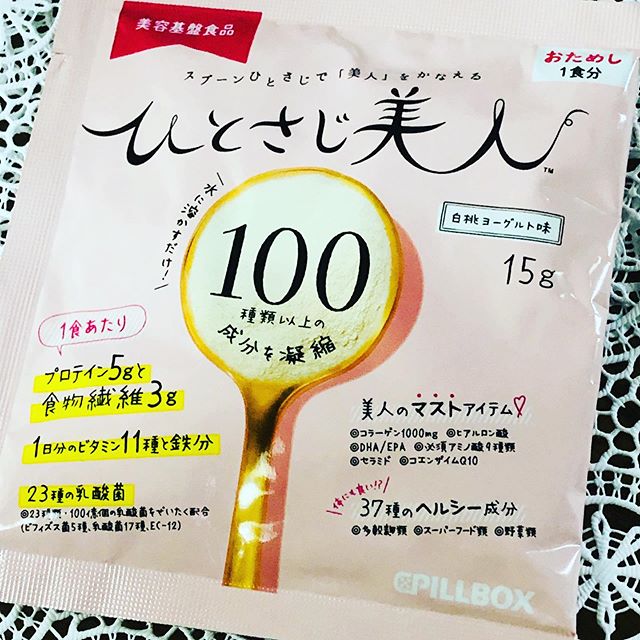 美容基盤食品
おためし
1食分
スプーンひとさじで「美人」をかなえる
ひとさじ美人
TM
水に溶かすだけ!
白桃ヨーグルト味
15g
100
種類以上の
成分を凝縮
1食あたり
プロテイン5gと
食物繊維3g
1日分のビタミン11種と鉄分
23種の乳酸菌
◎23種・100億個の乳酸菌をぜいたく配合
(ビフィズス菌5種、乳酸菌17種、EC-12)
美人のマストアイテム
◎コラーゲン1000mg ◎ヒアルロン酸
◎DHA/EPA ◎必須アミノ酸9種類
◎セラミド ◎コエンザイムQ10
体にも良い!?
37種のヘルシー成分
◎多穀麹類 ◎スーパーフード類 ◎野菜類
PILLBOX